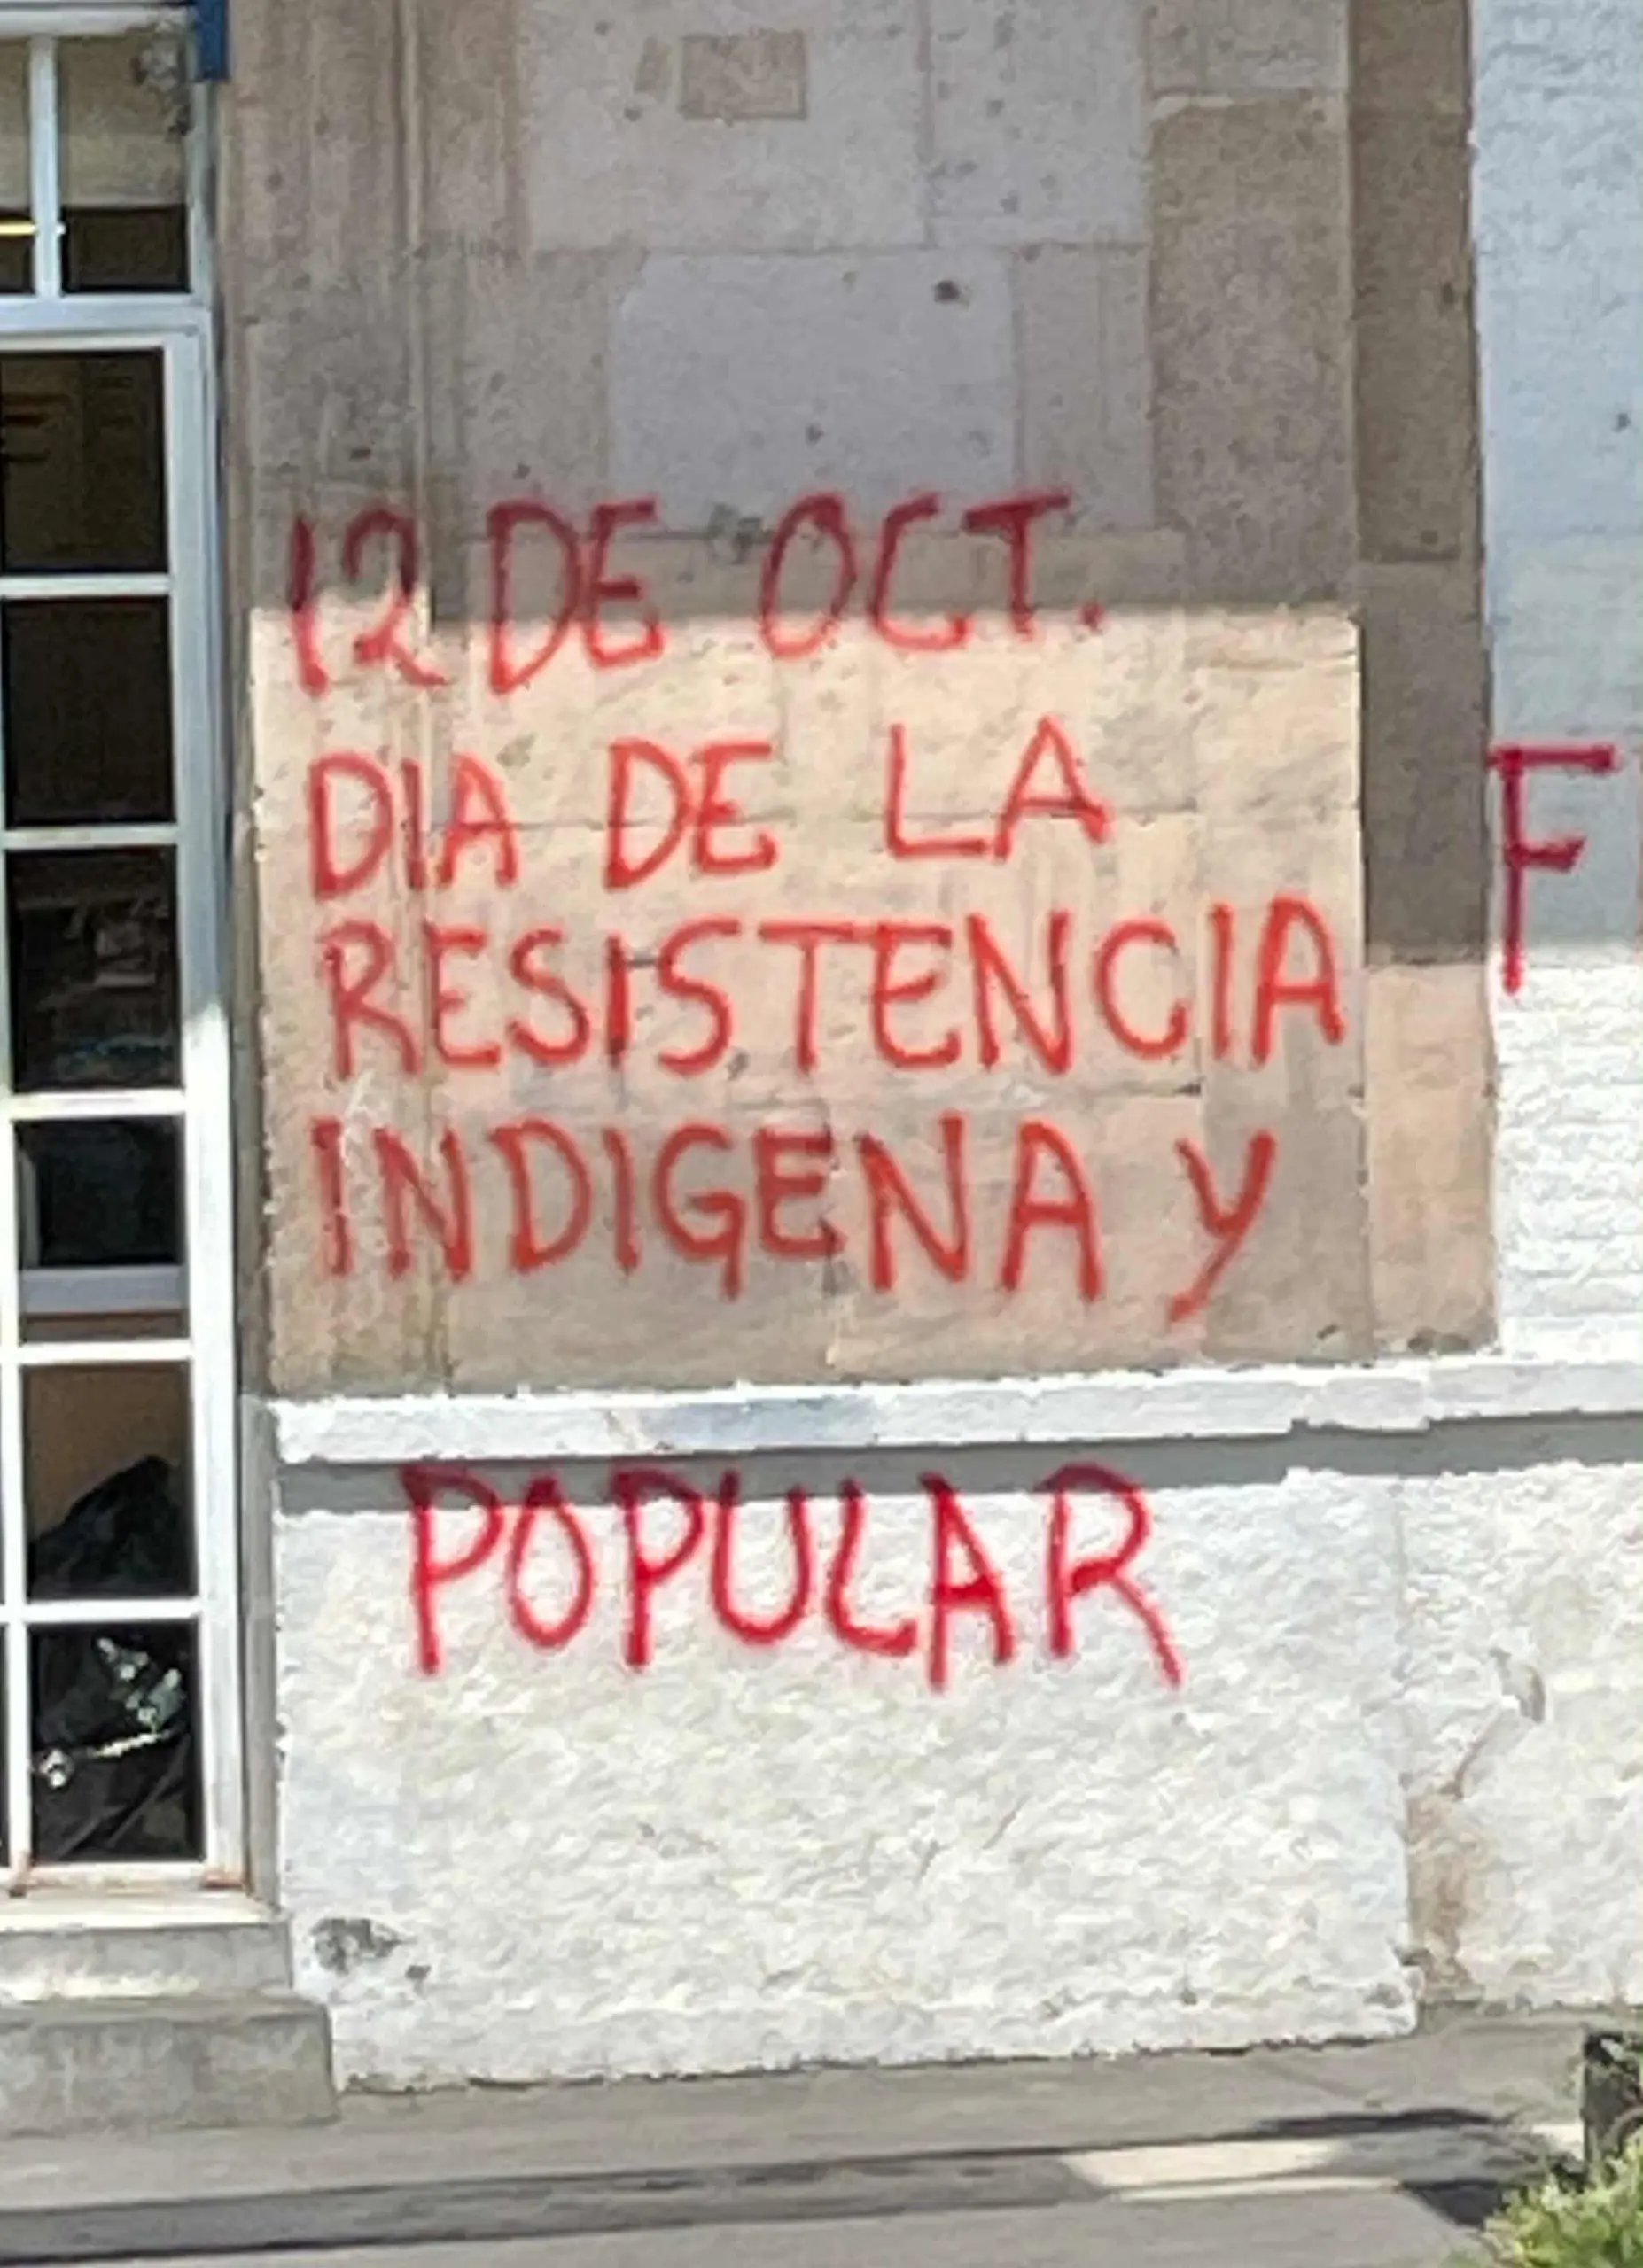 12 DE OCT.
DIA DE LA
RESISTENCIA
INDIGENA Y
POPULAR
F